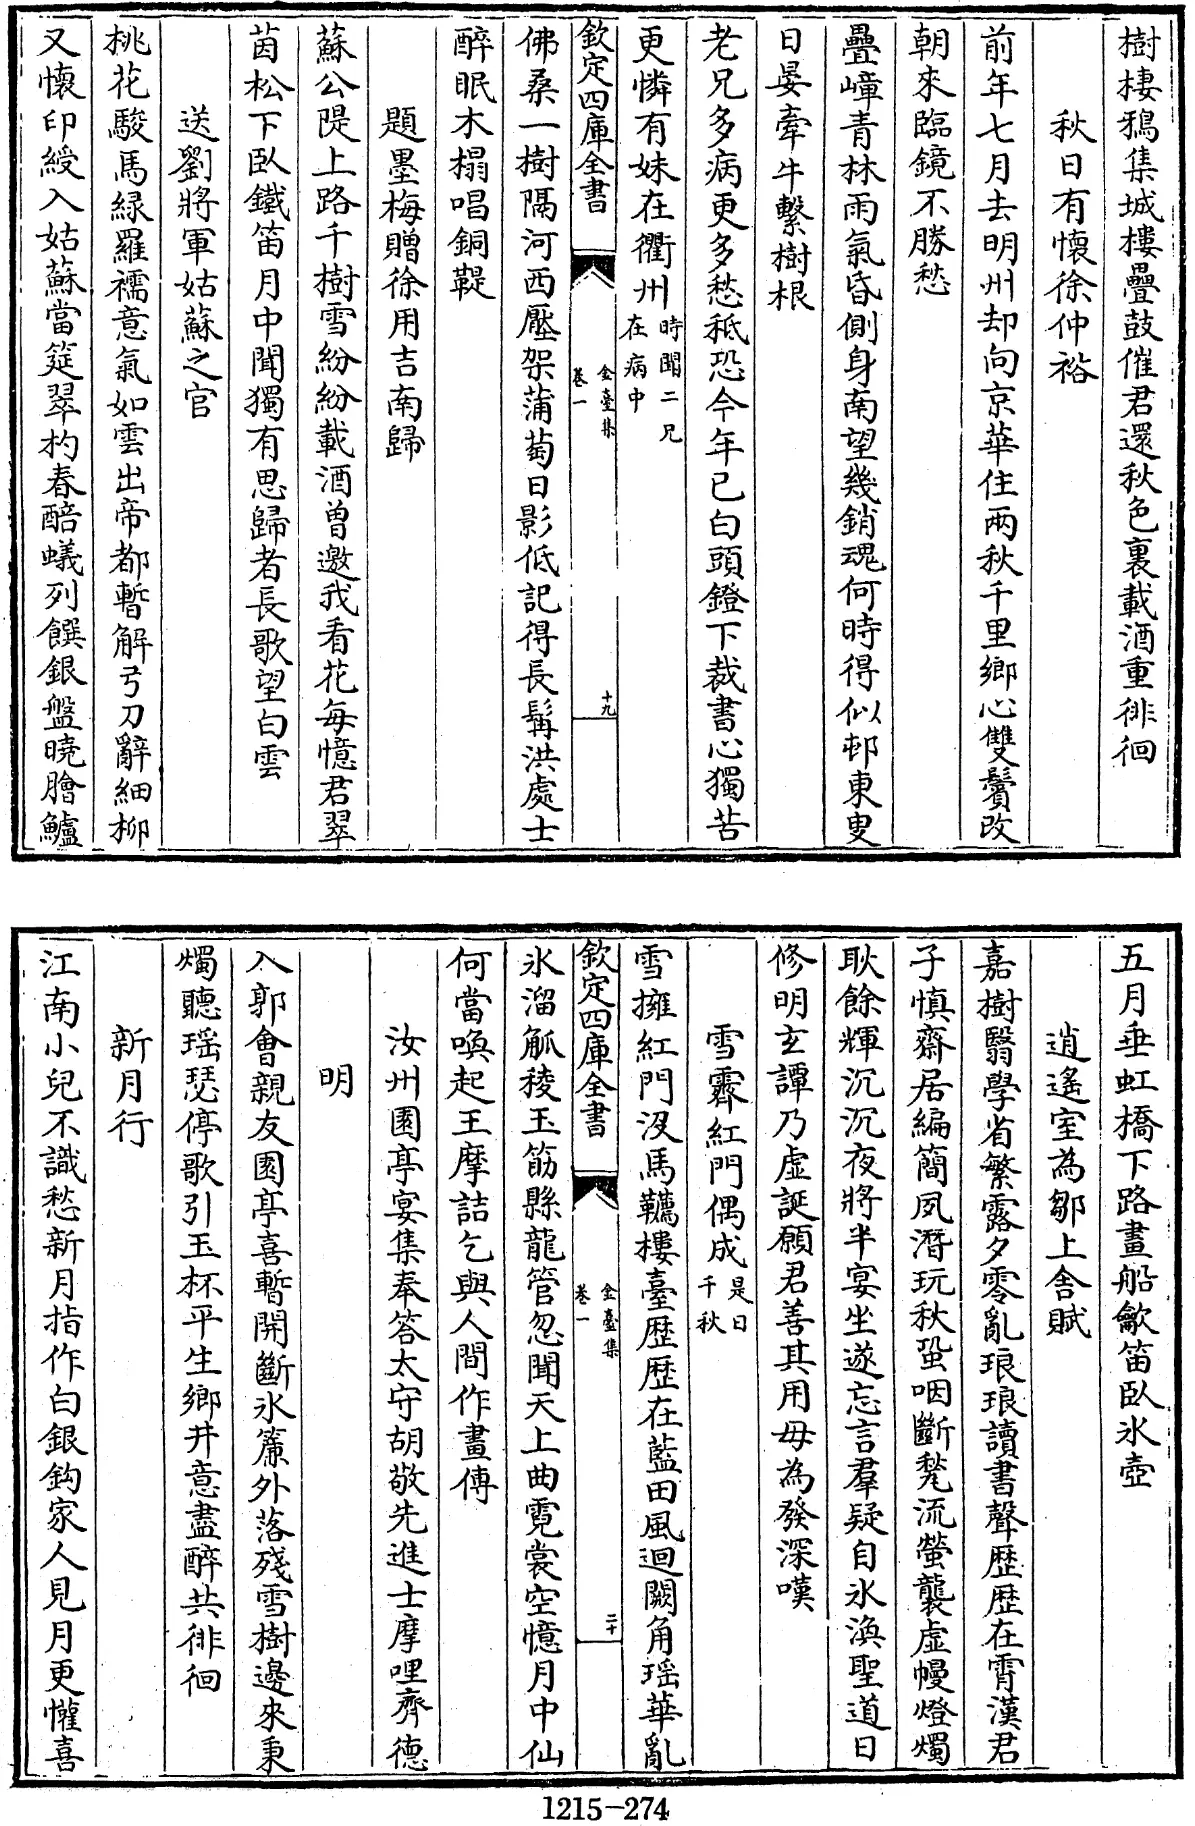 樹棲鴉集城樓疊鼓催君還秋色裏載酒重徘徊
秋日有懷徐仲裕
前年七月去明州却向京華住兩秋千里鄉心雙鬢改
朝來臨鏡不勝愁
疊嶂青林雨氣昏側身南望幾銷魂何時得似邨東叟
日晏牽牛繫樹根
老兄多病更多愁秪恐今年已白頭鐙下裁書心獨苦
更憐有妹在衢州時聞二兄在病中
欽定四庫全書
金臺集
卷一
十九
佛桑一樹隔河西壓架蒲萄日影低記得長髯洪處士
醉眠木榻唱銅鞮
題墨梅贈徐用吉南歸
蘇公隄上路千樹雪紛紛載酒曾邀我看花每憶君翠
茵松下臥鐵笛月中聞獨有思歸者長歌望白雲
送劉將軍姑蘇之官
桃花駿馬緑羅襦意氣如雲出帝都暫解弓刀辭細柳
又懷印綬入姑蘇當筵翠杓春醅蟻列饌銀盤曉膾鱸
五月垂虹橋下路畫船歈笛臥氷壺
逍遙室為鄒上舍賦
嘉樹翳學省繁露夕零亂琅琅讀書聲歴歴在霄漢君
子慎齋居編簡夙潛玩秋蛩咽斷甃流螢襲虛幔燈燭
耿餘輝沉沉夜將半宴坐遂忘言羣疑自氷渙聖道日
修明玄譚乃虛誕願君善其用毋為發深嘆
雪霽紅門偶成是日千秋
雪擁紅門沒馬韉樓臺歴歴在藍田風迴闕角瑶華亂
欽定四庫全書
金臺集
卷一
二十
氷溜觚稜玉筯縣龍管忽聞天上曲霓裳空憶月中仙
何當喚起王摩詰乞與人間作畫傳
汝州園亭宴集奉答太守胡敬先進士摩哩齊德
明
入郭會親友園亭喜暫開斷氷簾外落殘雪樹邊來秉
燭聽瑶瑟停歌引玉杯平生鄉井意盡醉共徘徊
新月行
江南小兒不識愁新月指作白銀鈎家人見月更懽喜
1215-274